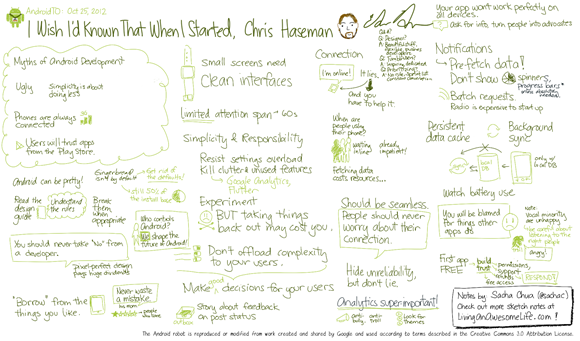 AndroidTO: Oct 25, 2012
I Wish I'd Known That When I Started, Chris Haseman
Myths of Android Development
Ugly
Simplicity is about
doing less
Phones are always
connected
Users will trust apps
from the Play Store.
Android can be pretty!
Gingerbread
isn't by default
Get rid of
the defaults!
still 50% of
the install base
Read the
design
guide
Understand
the rules
Break
them
when
appropriate
Who controls
Android?
We shape the
future of Android!
You should never take "No" from
a developer.
pixel-perfect design
pays huge dividends
"Borrow" from the
things you like.
Never waste
a mistake.
people
Small screens need
Clean interfaces
Limited attention span ~ 60s
Simplicity & Responsibility
Resist settings overload
Kill clutter & unused features
Google Analytics,
Flutter
Experiment
BUT taking things
back out may cost you.
Don't offload complexity
to your users.
Make good decisions for your users
Story about feedback
on post status
Connection
I'm online!
It lies,
And you
have to help it.
Q&A:
Q: Designer?
When are
people using
their phone?
waiting
in line
already
impatient!
Fetching data
costs resources...
Should be seamless.
People should never
worry about their
connection.
Hide unreliability,
but don't lie.
Analytics super important!
anti-
bully.
anti-
troll
Look for
themes
Your app won't work perfectly on
all devices.
Ask for info, turn people into advocates
Notifications
Pre-fetch data!
Don't show spinners,
progress bars*
Batch requests.
Radio is expensive to start up
Persistent
data cache
Background
sync
local
DB
only w/
local DB
Watch battery use
You will be blamed for things
other apps do
Note:
Vocal minority
are unhappy
Be careful about
listening to the
right people
angry!
First app
FREE
build
trust
permissions,
support
reliable
free access
RESPOND!
Notes by: Sacha Chua (@sachac)
Check out more sketch notes at
LivingAnAwesomeLife.com !
The Android robot is reproduced or modified from work created and shared by Google and used according to terms described in the Creative Commons 3.0 Attribution License.